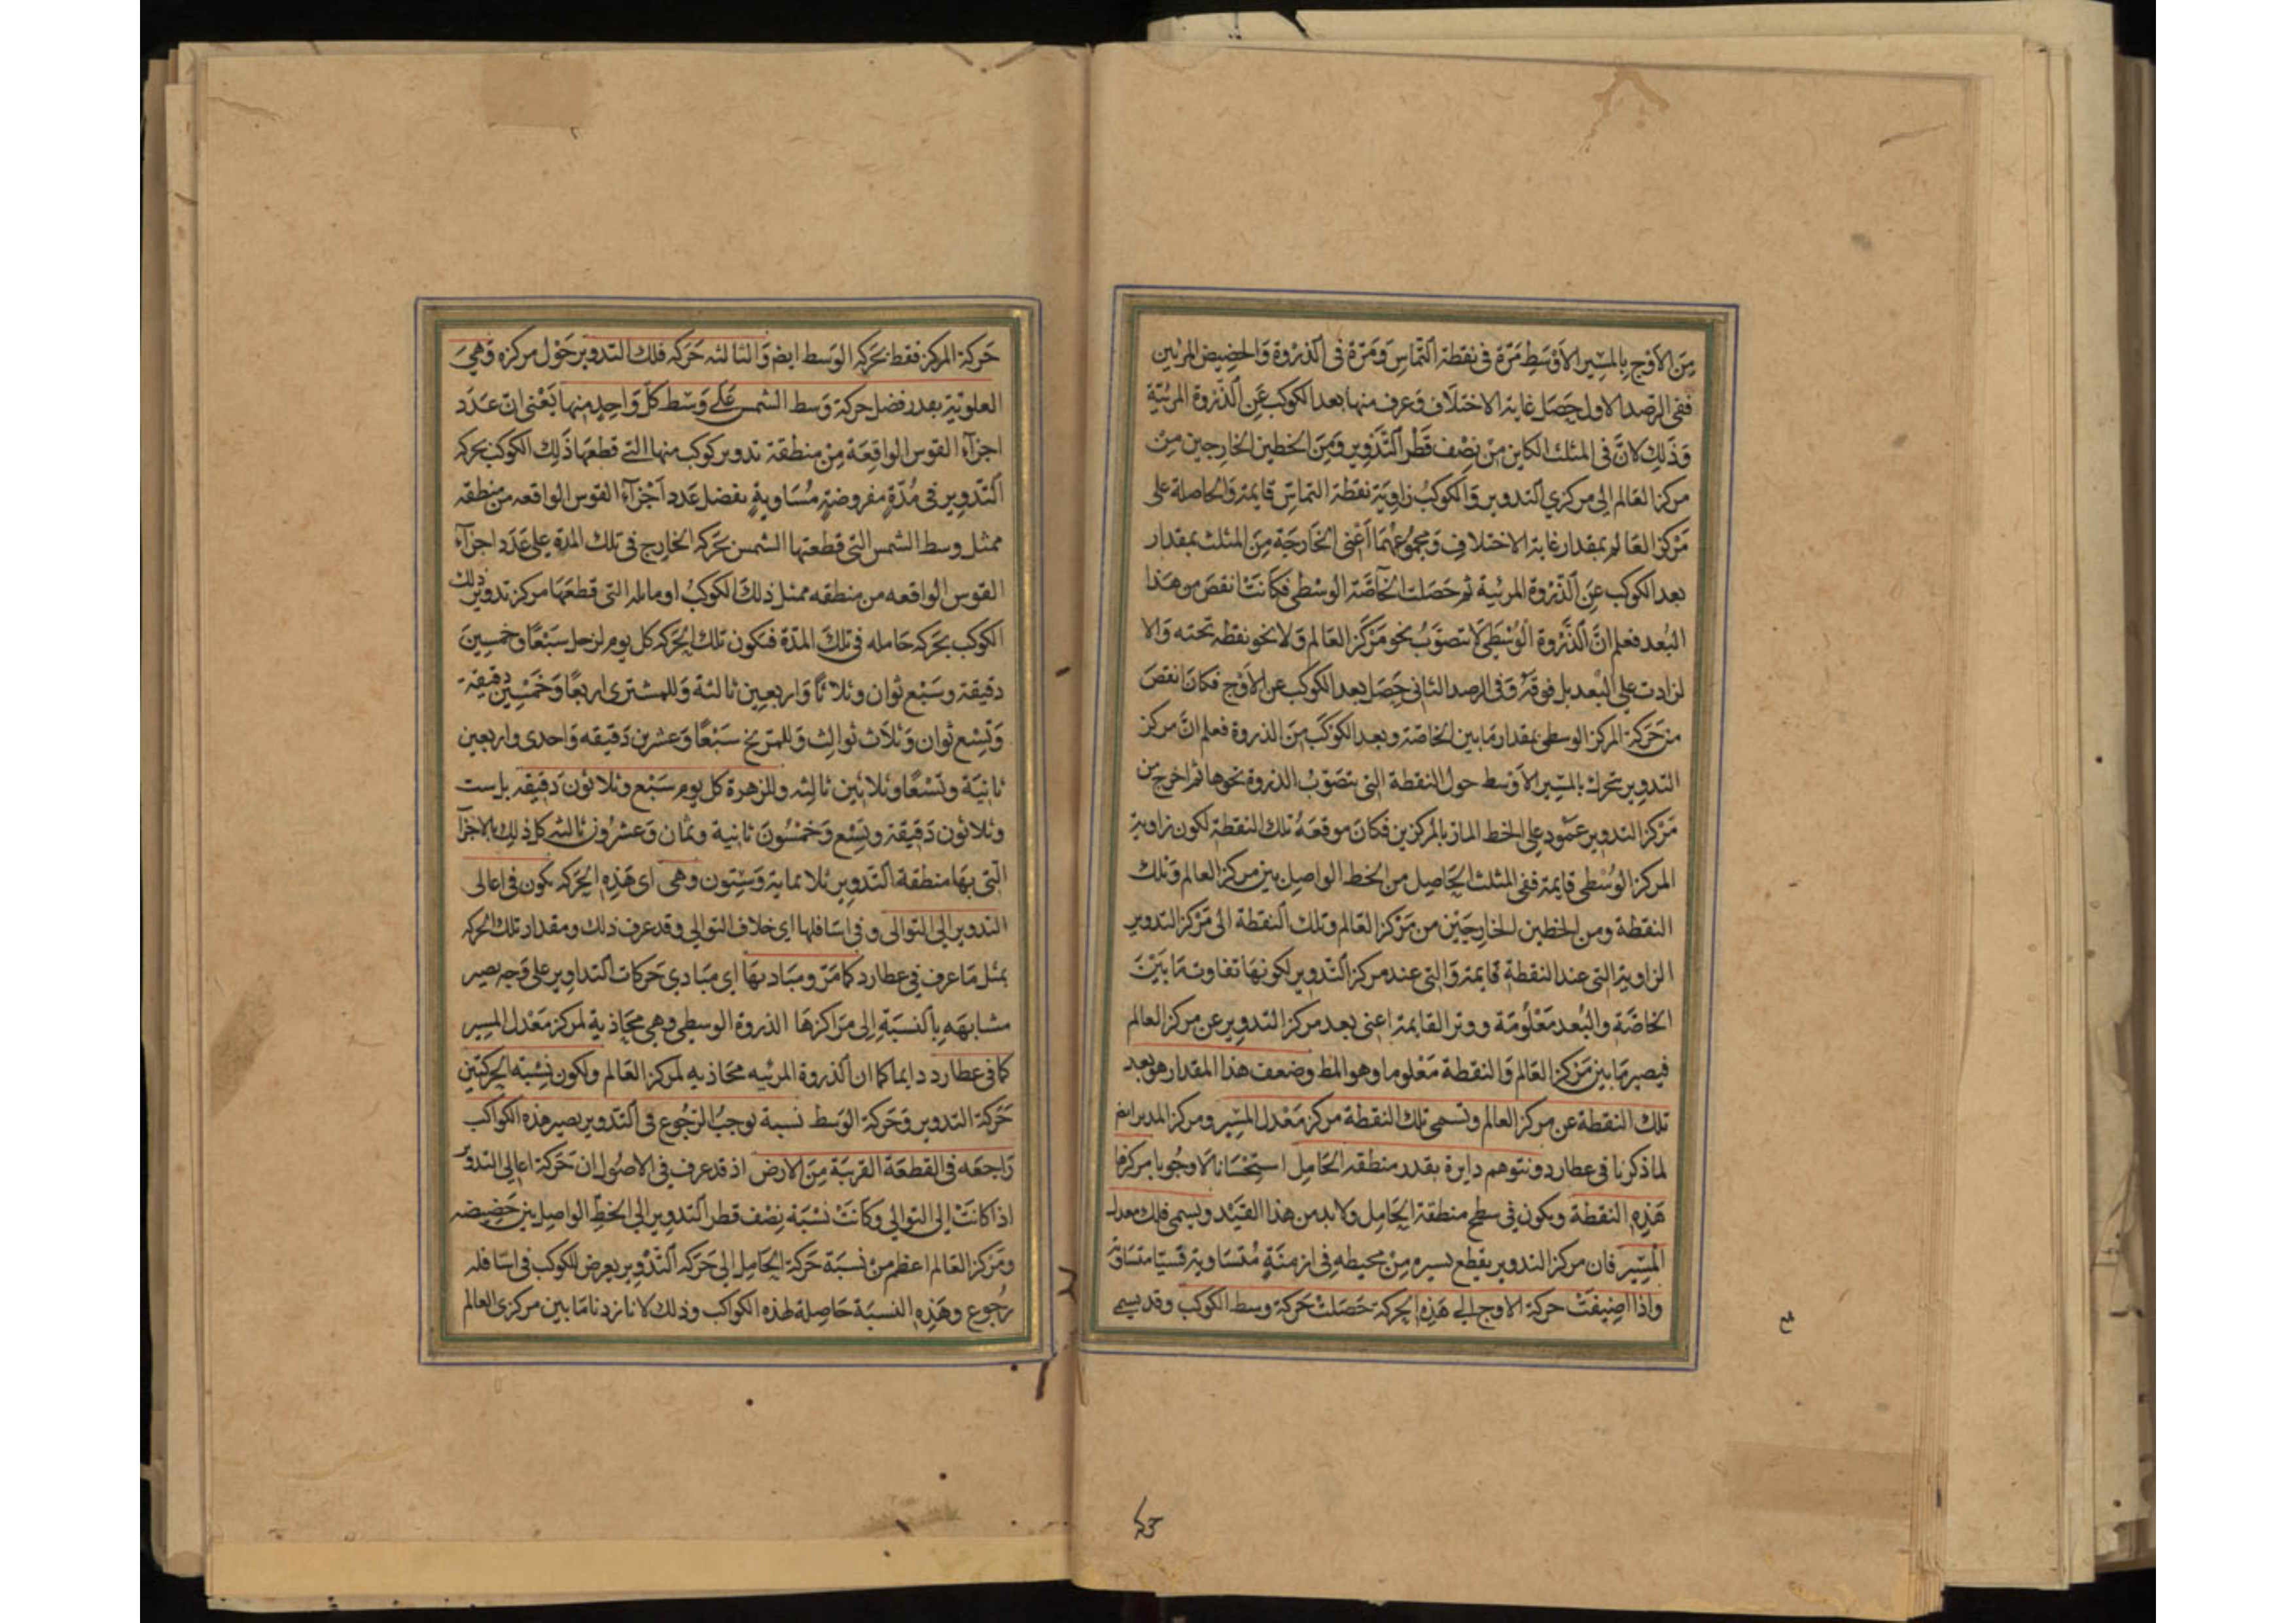 مِنَ الاَوْج بِالمسِيْر الاَوْسَطِ مَرّة فى نقطة التّماسِ وَمَرّة فى الذرْوة وَالحضِيض المرئيين
ففى الرصد الاول حَصَل غاية الاختلاف وَعرف منها بعد الكوكب عَنِ الذّروة المرئيّة
وَذَلِكَ لانَّ فى المثلث الكاين مِنْ نِصْف قَطْر التَّدْوِير وَمِنَ الخطين الخارجين مِنْ
مركز العَالم الى مركزي التدوير وَالكوكبُ زاوِيَة نقطة التماسِّ قايمة وَالحاصلة على
مَرْكز العَالم بمقدار غاية الاختلافِ وَمجمُوعهُمَا اَعْنى الخارجَة مِنَ المثلث بمقدار
بعد الكوكب عَنِ الذّرْوة المرئية ثم حَصَلت الخاصَّة الوسْطى فكَانَتْ انقصَ من هَذا
البُعد فعلم انَّ الذَّرْوة الوُسْطَى لا تتصوَّبُ نحو مَرْكز العَالم وَلا نحو نقطة تحته وَالا
لزادت على البُعد بل فوقَهُ وَفى الرصد الثانى حَصَل بعد الكوكب عن الاوْج فكَانَ انقصَ
من حَرَكة المركز الوسطى بمقدار مَا بين الخاصّة وبعد الكوكبَ مِنَ الذروة فعلم انَّ مركز
التدوِير يتحرك بالمسِير الاَوْسط حول النقطة التى تتصَوّبُ الذروة نحوها ثم اخرج من
مَرْكز التدوير عَمُود على الخط المار بالمركزين فكَانَ موقعَهُ تلك النقطة لكون زاوية
المركز الوُسْطى قايمة ففى المثلث الحَاصِل من الخط الواصِل بين مركز العالم وَتلك
النقطة ومن الخطين الخارجَيْن من مَرْكز العَالم وتلك النقطة الى مَرْكز التدوير
الزاوية التى عند النقطة قايمة وَالتى عند مركز التّدوير لكونهَا تفاوت مَا بَيْنَ
الخاصَّة والبُعد مَعْلوُمَة ووتر القايمة اعنى بعد مركز التدوير عن مركز العالم
فيصير مَا بين مَرْكز العَالم وَالنقطة مَعْلوما وهو المط وضعف هذا المقدار هو بعد
تلك النقطة عن مركز العالم وتسمى تلك النقطة مركز مَعْدل المسّير ومركز المدير ايض
لما ذكرنا فى عطارد ونتوهم دايرة بقدر منطقة الحَامِل استِحْسَانا لاَ وجُوبا مركزها
هَذِهِ النقطة ويكون فى سطح منطقة الحَامِل وَلابد من هذا القَيْد ويسمى فلك معدل
المْسِّير فان مركز التدوير يقطع بسيره مِنْ محيطه فِى ازمنَةٍ مُتسَاوية قسيّا متسَاوية
واذا اضِيفَتْ حركة الاوج الى هَذِهِ الحركة حَصَلَتْ حَرَكة وسط الكوكب وقد يسمى
حَركة المركز فقط بحَركة الوَسط ايض وَالثالثة حَركة فلك التدوير حَوْل مركزه وَهِيَ
العلويّة بقدر فضل حركة وَسط الشمس عَلى وَسَط كلّ وَاحِدٍ منها يَعْنى انّ عَدَد
اجزآءِ القوس الواقِعَة مِنْ منطقة تدوير كوكب منها التى قطعَها ذَلِك الكوكبُ بحركة
التَّدْوِير فى مُدّةٍ مفروضةٍ مُسَاويةٍ بفضل عَدد اَجْزآءِ القوس الواقعه من منطقه
ممثل وسط الشمس التى قطعتها الشمس بحَركة الخارِج فى تلك المدّة على عَدَد اجزآء
القوس الواقعه من منطقه ممثل ذلكَ الكوكبُ او مائله التى قطعَهَا مركز تدوير ذلك
الكوكب بحَركة حَامله فى تلكَ المدّة فتكون تلك الحَركة كل يوم لزحل سَبْعًا وخمسِينَ
دقيقة وسَبْع ثوان وثلاثًا وَاربعِين ثالثة وَللمشترى اربعًا وَخَمْسِين دقيقة
وَتِسْع ثوان وَثلاَث ثوالِث وَللمرّيخ سَبْعًا وَعشرين دَقيقه وَاحدى واربعين
ثانِيَة وَتسْعًا وثلاثِين ثالِثه وللزهرة كل يومٍ سَبْع وثلاثون دَقيقِة بل ست
وثلاثون دَقيقة وتِسْع وَخمْسُونَ ثانية وثمان وَعشرُون ثالثه كل ذلِك بالاجزآ
التّى بهَا منطقة التّدوِير ثلاثمائة وَسِتون وَهى اى هَذِهِ الحَركة تكون فى اعالى
التدوير الى التوالى و فى اسَافلها اى خلاف التوالى وقد عرف ذلك ومقدار تلك الحركة
بمثل مَا عرف فى عطارد كمَا مَرّ ومبَادئهَا اى مبَادي حَركات التداوِير على وَجه يصير
مشابهَه بِالنسبَةِ اِلى مَراكزهَا الذروة الوسطى وهى محَاذية لمركز مَعْدل المسِير
كمَا فى عطارد دايما كما ان الذروة المرئيه محَاذيه لمركز العَالم ولكون نِسْبَة الحركتين
حَرَكة التدوير وَحَركة الوَسط نسبة توجبُ الرّجُوع فى التّدوِير يصير هذه الكوَاكب
رَاجعَه فى القطعَة القريبَة مِنَ الارض اذ قد عرف فى الاصُول ان حَركة اعالى التدوير
اذا كانَتْ اِلى التوالى وكاَنَتْ نسْبَة نِصْف قطر التدوِير الى الخطِّ الواصِل بين حَضِيضه
ومَرْكز العَالم اعظم مِنْ نسبَة حَركة الحَامِل اِلى حَركة التّدْوِير يعرض للكوكب فى اسَافله
رجُوع وهَذِهِ النسبَة حَاصِلة لهذه الكواكب وذلك لانا نزدنا مَا بين مركزى العالم